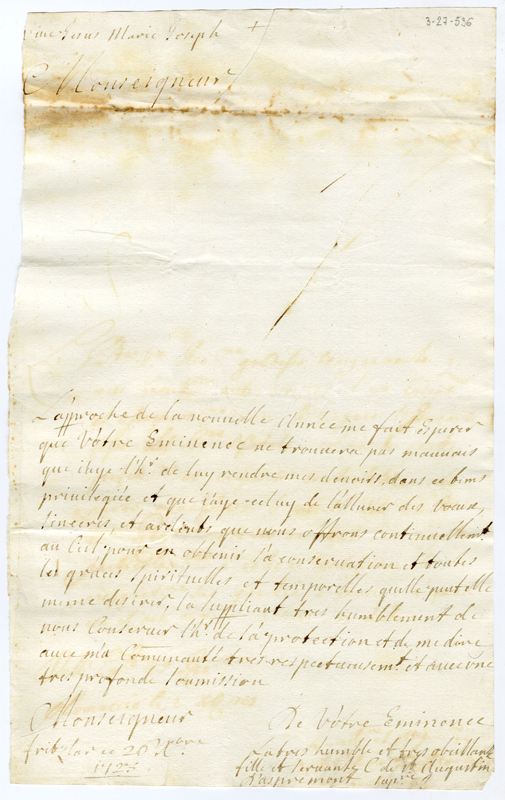 3-27-536
Vive Jesus Marie Joseph +
Monseigneur
L'approche de la nouvelle Année me fait Esperer
que Vôtre Eminence ne trouvera pas mauvais
que i'aye l'hr. de luy rendre mes devoirs, dans ce tems
privilegiée et que i'aye celuy de l'assurer des vœux,
sinceres, et ardents que nous offrons continuellemt.
au Ciel pour en obtenir sa conservation et toutes
les graces spirituelles et temporelles quelle peut elle
meme desirer, la supliant tres humblement de
nous Conserver l'hr. de sa protection et de me dire
avec ma Communauté tres respectueusemt. et avec une
tres profonde soumission
Monseigneur
De Vôtre Eminence
ce 20
La tres humble et tres obeissante
fille et servante C de St. Augustin
D'aspremont supre